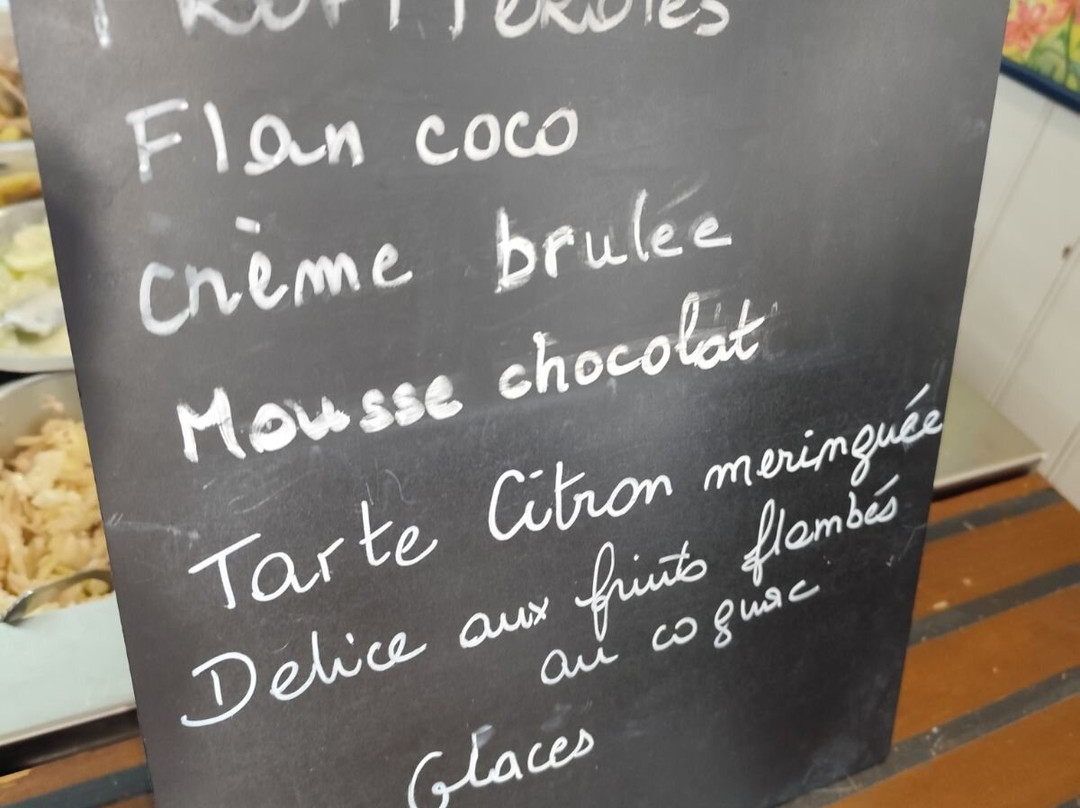 PROFITEROLES
Flan coco
Crème brulée
Mousse chocolat
Tarte Citron meringuée
Delice aux fruits flambés
au cognac
Glaces